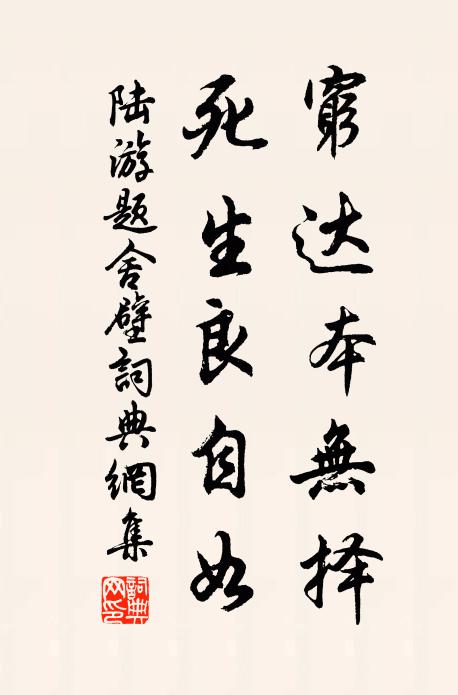 窮达本無择
死生良自如
陆游题舍壁詞典網集
詞典网印